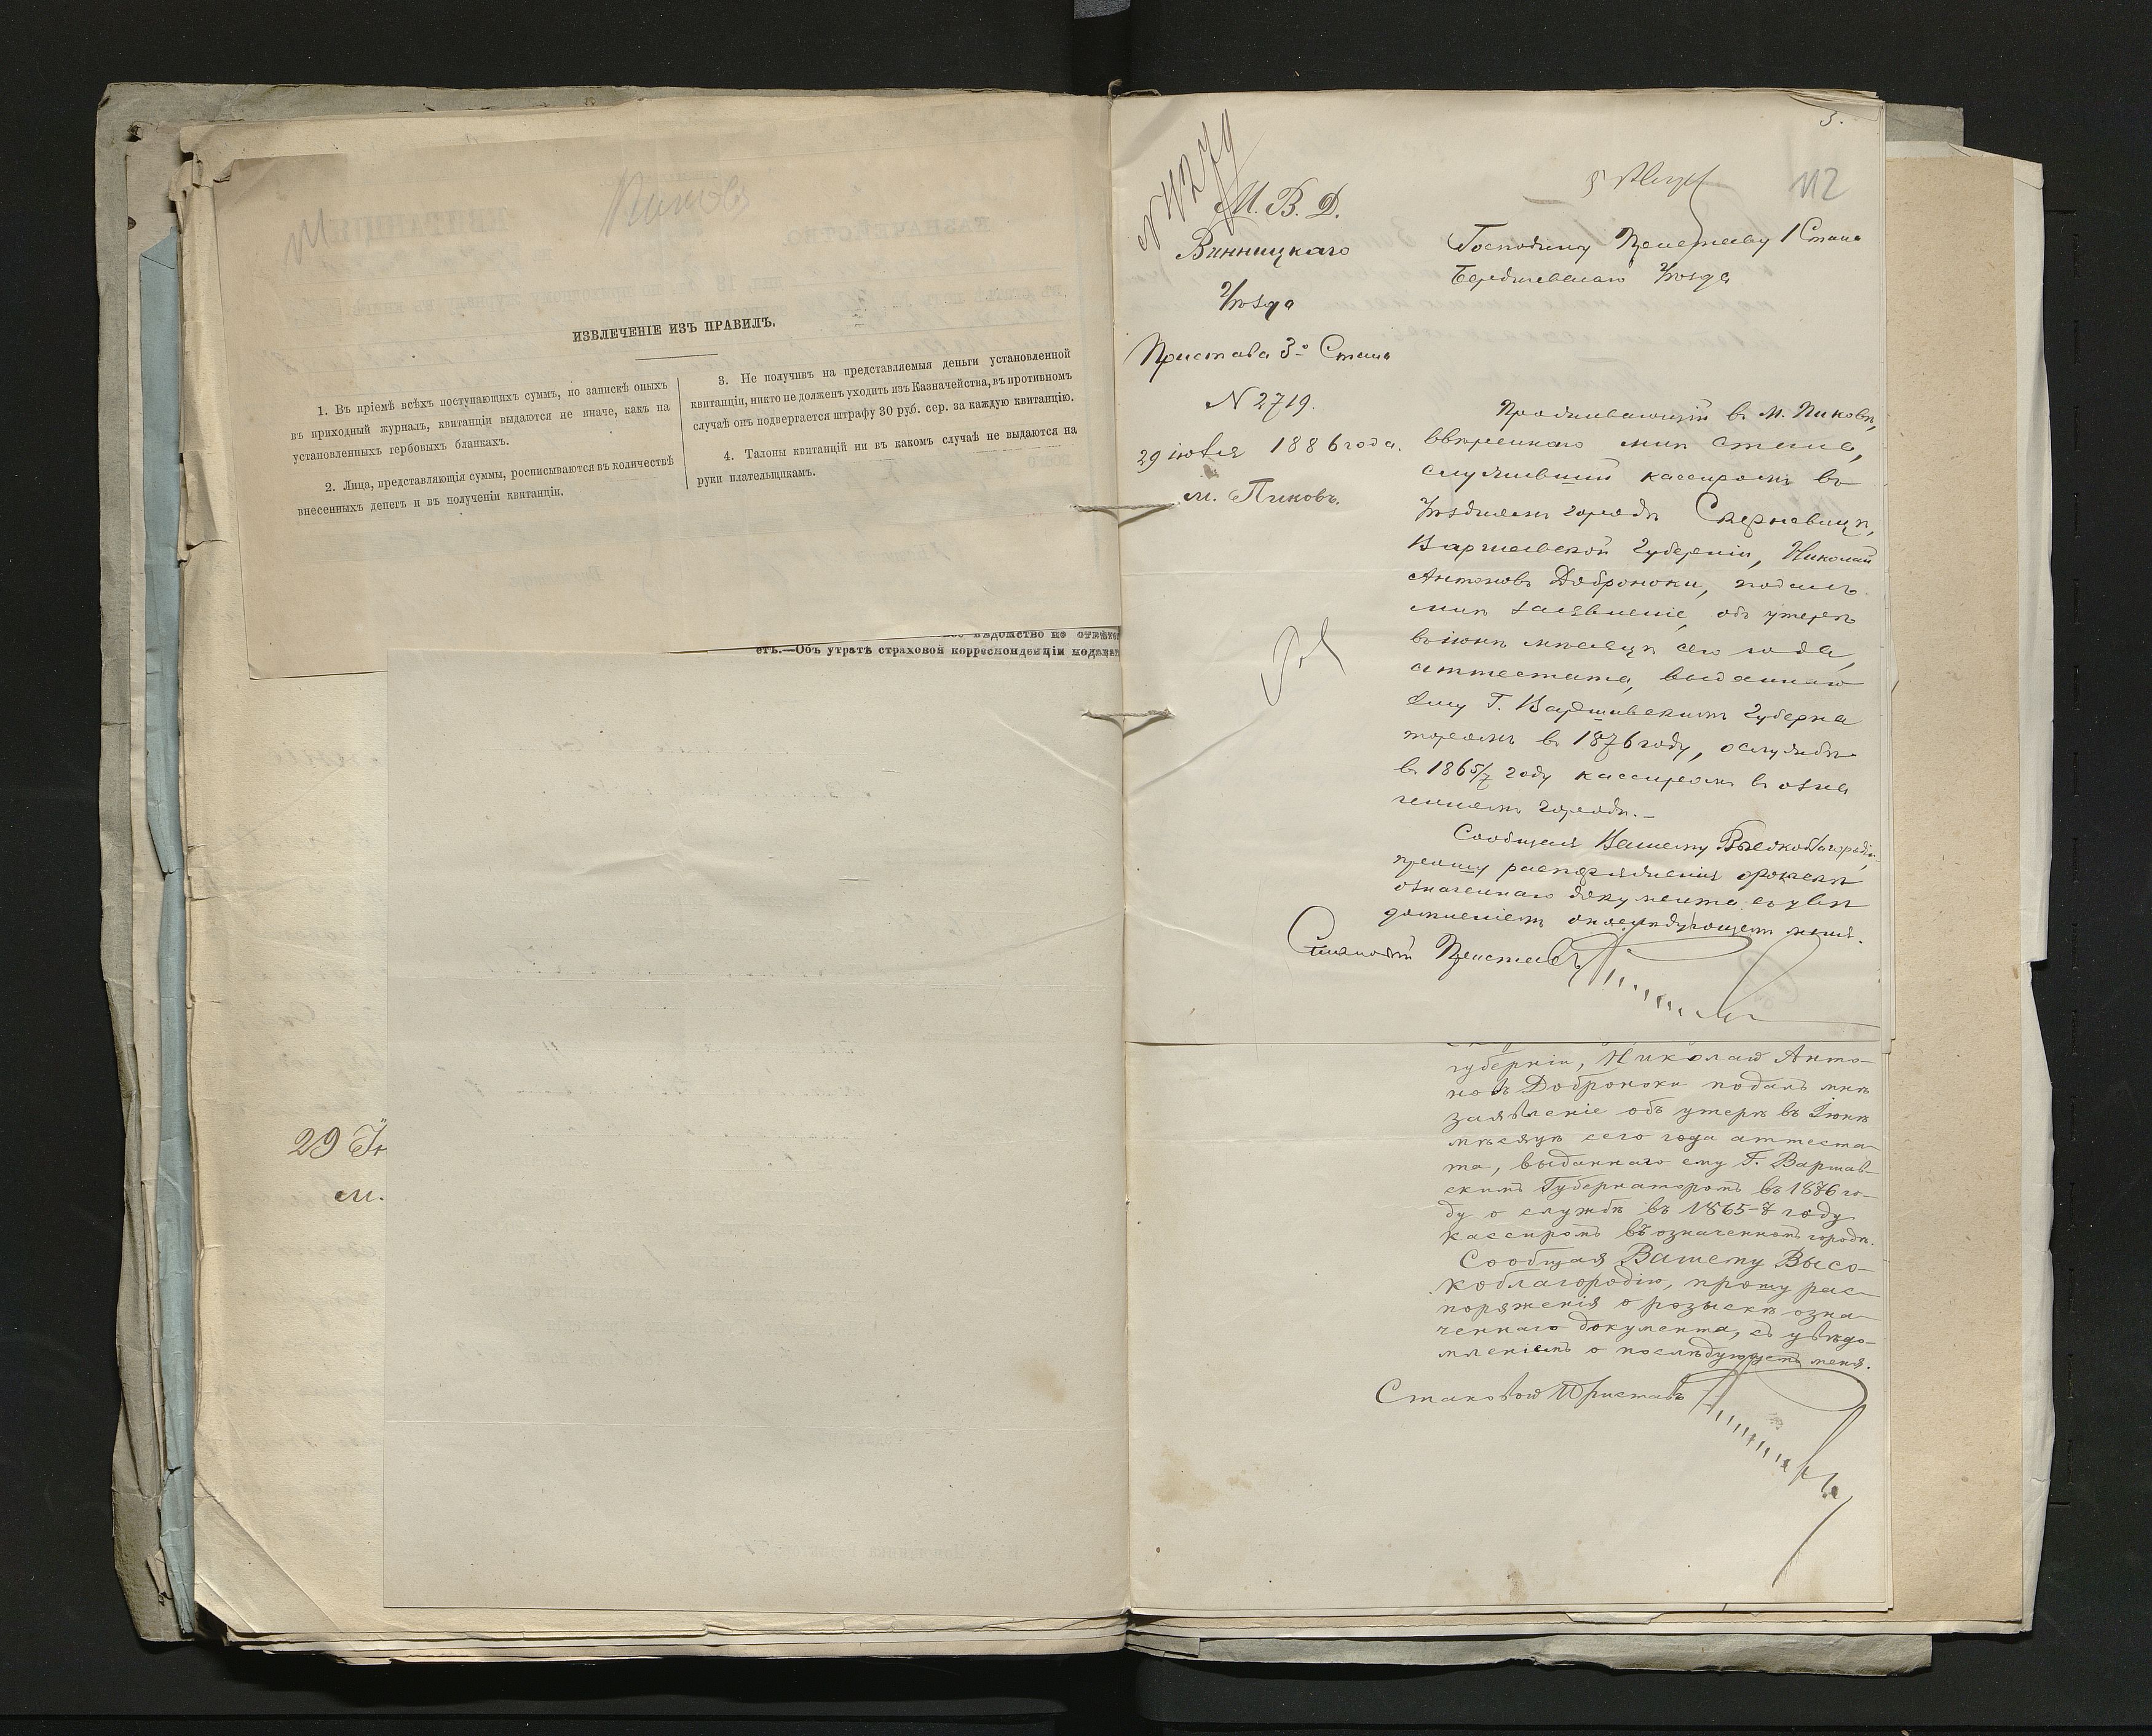 Пиковъ
ИЗВЛЕЧЕНІЕ ИЗЪ ПРАВИЛЪ.
1. Въ пріемѣ всѣхъ поступающихъ суммъ, по запискѣ оныхъ
въ приходный журналъ, квитанціи выдаются не иначе, какъ на
установленныхъ гербовыхъ бланкахъ.
2. Лица, представляющія суммы, росписываются въ количествѣ
внесенныхъ денегъ и въ полученіи квитанціи.
3. Не получивъ на представляемыя деньги установленной
квитанціи, никто не долженъ уходить изъ Казначейства, въ противномъ
случаѣ онъ подвергается штрафу 30 руб. сер. за каждую квитанцію.
4. Талоны квитанцій ни въ какомъ случаѣ не выдаются на
руки плательщикамъ.
вѣдомство не отвѣч
етъ.—Объ утратѣ страховой корреспонденціи подлежат
29 Ію
м.
3.
112
№ 4279
М. В. Д.
Винницкаго
Уѣзда
Пристава 3го Стана
№ 2719.
29 іюля 1886 года.
м. Пиковъ.
Господину Приставу 1 Стана
Бердичевскаго Уѣзда
Проживающій въ м. Пиковѣ,
ввѣреннаго мнѣ стана,
служившій кассиромъ въ
Уѣздномъ городѣ Скерневицѣ,
Варшавской Губерніи, Николай
Антоновъ Доброноки, подалъ
мнѣ заявленіе, объ утерѣ
въ іюнѣ мѣсяцѣ сего года,
аттестата, выданнаго
ему Г. Варшавскимъ Губерна
торомъ въ 1876 году, о службѣ
въ 1865/7 году кассиромъ въ озна
ченномъ городѣ.—
Сообщая Вашему Высокоблагородію,
прошу распоряженія о розыскѣ
означеннаго документа съ увѣ
домленіемъ о послѣдующемъ меня.
Становой Приставъ
губерніи, Николай Анто-
новъ Доброноки подалъ мнѣ
заявленіе объ утерѣ въ Іюнѣ
мѣсяцѣ сего года аттеста-
та, выданнаго ему Г. Варшав-
скимъ Губернаторомъ въ 1876 го-
ду о службѣ въ 1865-7 году
кассиромъ въ означенномъ городѣ.
Сообщая Вашему Высо-
коблагородію, прошу рас-
поряженія о розыскѣ озна-
ченнаго документа, съ увѣдо-
мленіемъ о послѣдующемъ меня.
Становой Приставъ